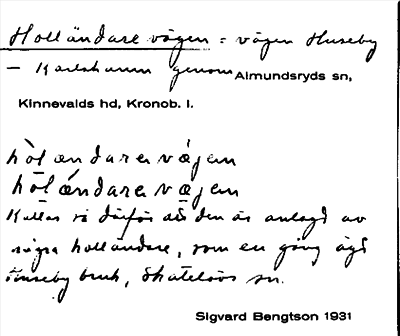 Holländare vägen = vägen Huseby
— Karlshamn genom Almundsryds sn,
Kinnevalds hd, Kronob. l.
hòlændarevægen
hòlændarevægen
Kallas så därför att den är anlagd av
några holländare, som en gång ägt
Huseby bruk, Skatelövs sn.
Sigvard Bengtson 1931